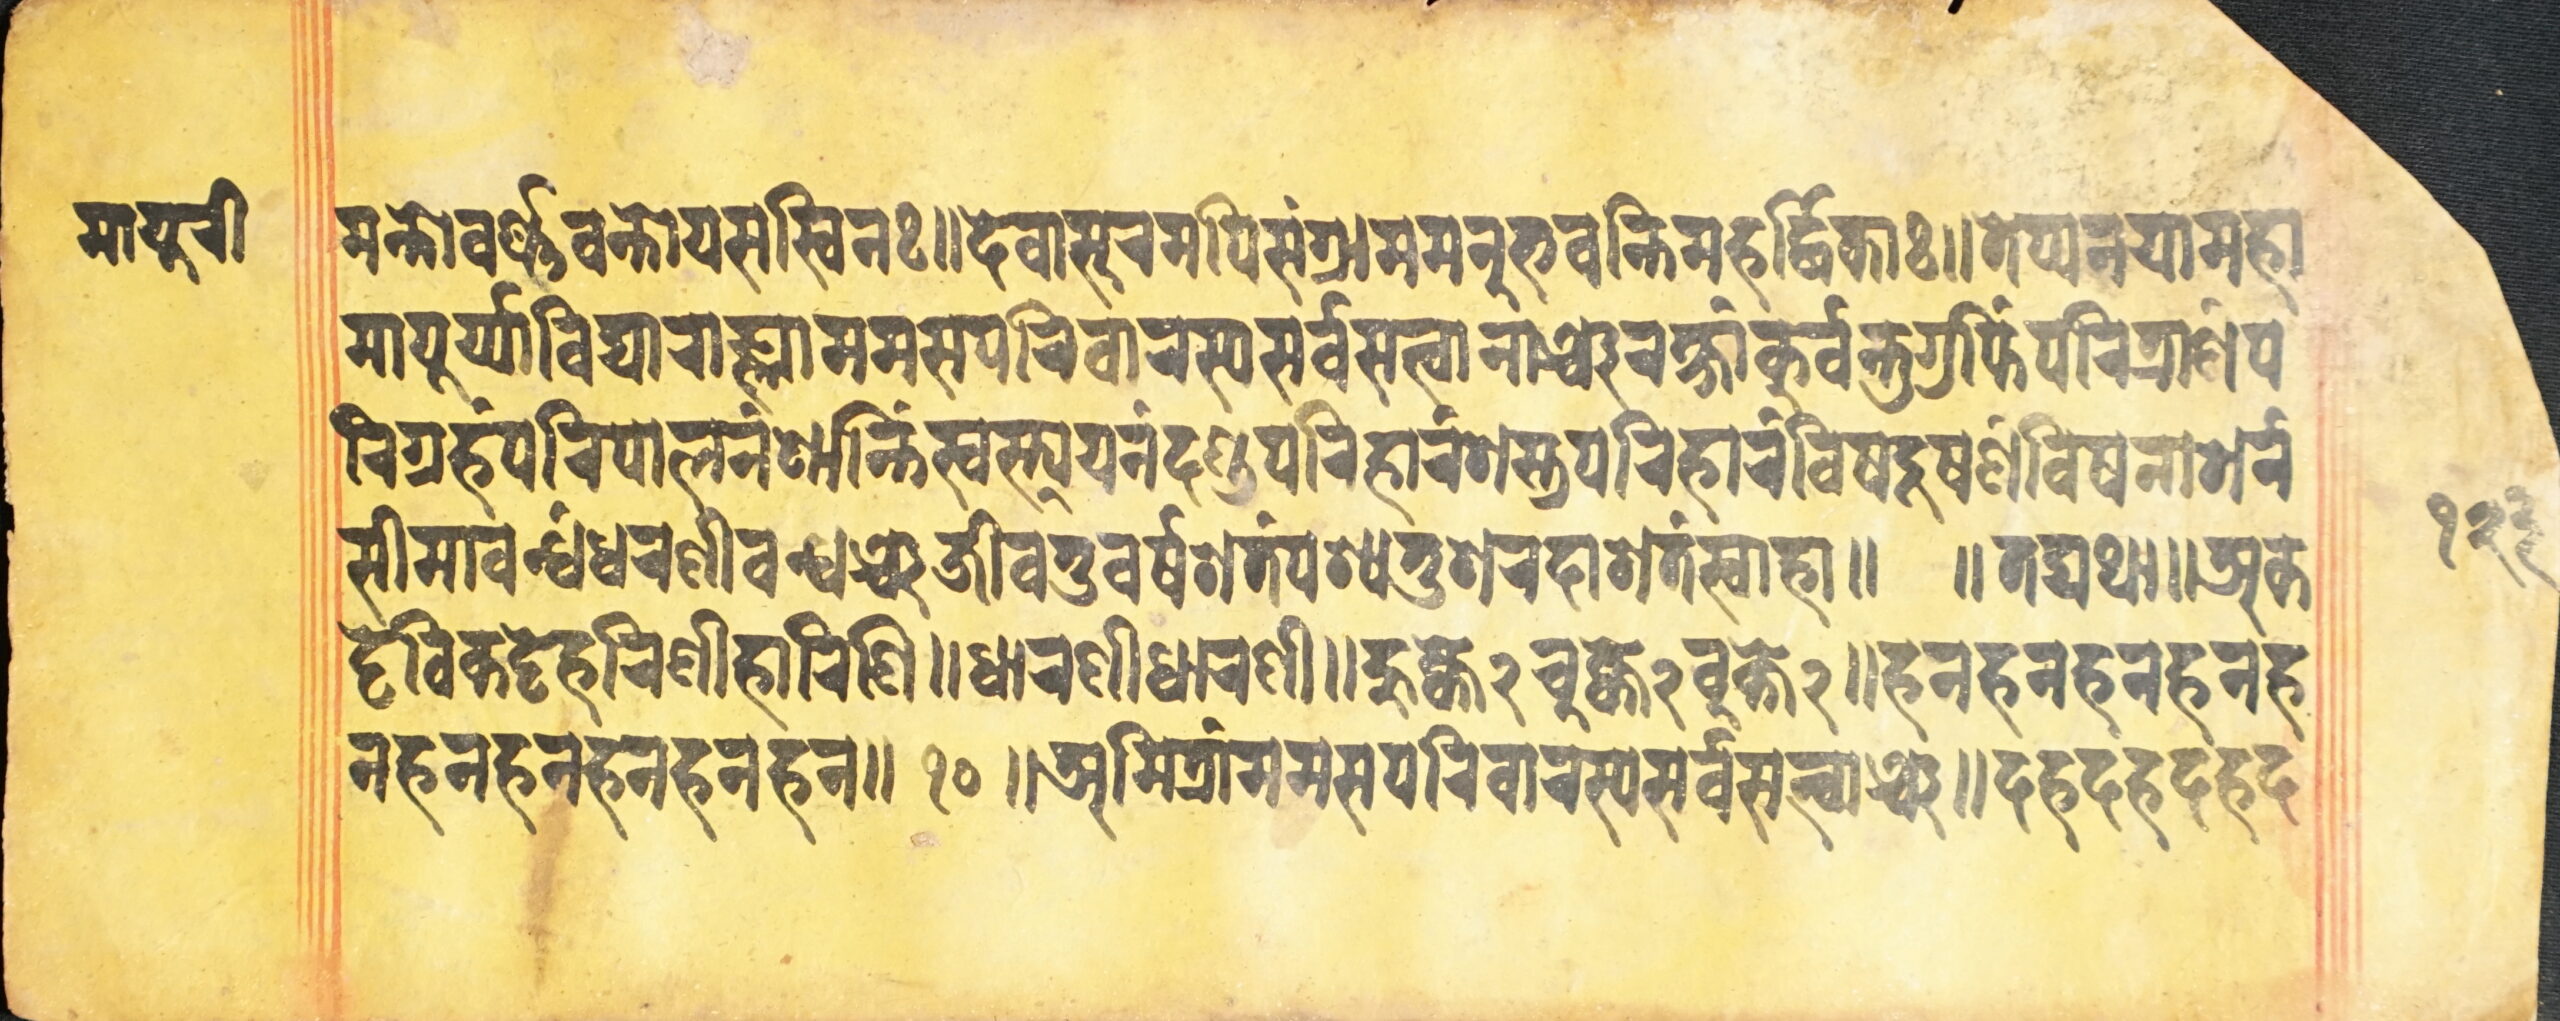 मायुरी
मन्तोवर्ण्णवन्तोयसस्विनः॥देवासुरमपिसंग्राममनुभवन्तिमहर्द्धिकाः॥तेप्यनयामहा
मायूर्य्याविद्याराज्ञ्याममसपरिवारस्यसर्वसत्वानाञ्चरक्षांकुर्वन्तुगुप्तिंपरित्राणंप
रिग्रहंपरिपालनंशान्तिंस्वस्त्ययनंदण्डपरिहारंशस्त्रपरिहारंविषदूषणंविषनाशनं
सीमावन्धंधरणीवन्धञ्चजीवतुवर्षशतंपश्यतुशरदाशतंस्वाहा॥ ॥तद्यथा॥अक
ट्टेविकट्टेहरिणीहारिणि॥धारणीधारणी॥हुक्के२चुक्के२वुक्के२॥हनहनहनहनह
नहनहनहनहनहन॥ १० ॥अमित्रांममसपरिवारस्यसर्वसत्वाञ्च॥दहदहदहद